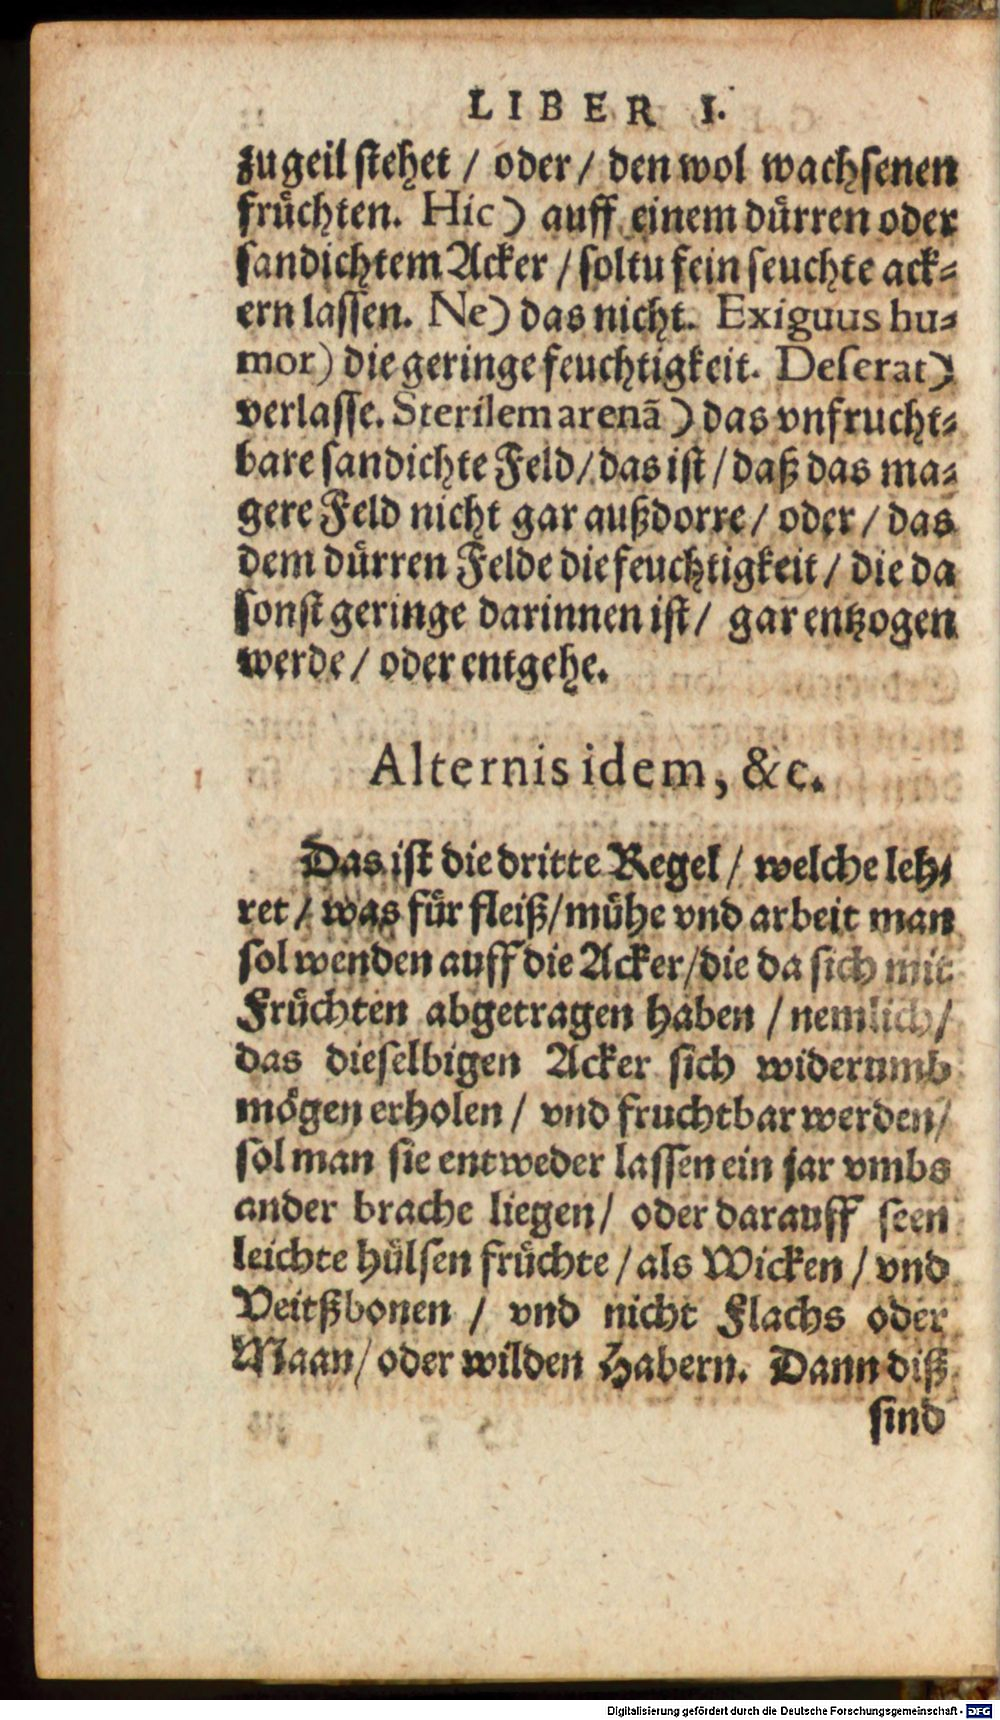 LIBER I.
zu geil stehet / oder / den wol wachsenen
früchten. Hic) auff einem dürren oder
sandichtem Acker / soltu fein seuchte ack-
ern lassen. Ne) das nicht. Exiguus hu-
mor) die geringe feuchtigkeit. Deserat)
verlasse. Sterilem arenã) das vnfrucht-
bare sandichte Feld / das ist / daß das ma-
gere Feld nicht gar außdorre / oder / das
dem dürren Felde die feuchtigkeit / die da
sonst geringe darinnen ist / gar entzogen
werde / oder entgehe.
Alternis idem, &c.
Das ist die dritte Regel / welche leh-
ret / was für fleiß / mühe vnd arbeit man
sol wenden auff die Acker / die da sich mit
Früchten abgetragen haben / nemlich /
das dieselbigen Acker sich widerumb
mögen erholen / vnd fruchtbar werden /
sol man sie entweder lassen ein jar vmbs
ander brache liegen / oder darauff seen
leichte hülsen früchte / als Wicken / vnd
Veitßbonen / vnd nicht Flachs oder
Maan / oder wilden Habern. Dann diß
sind
Digitalisierung gefördert durch die Deutsche Forschungsgemeinschaft - DFG